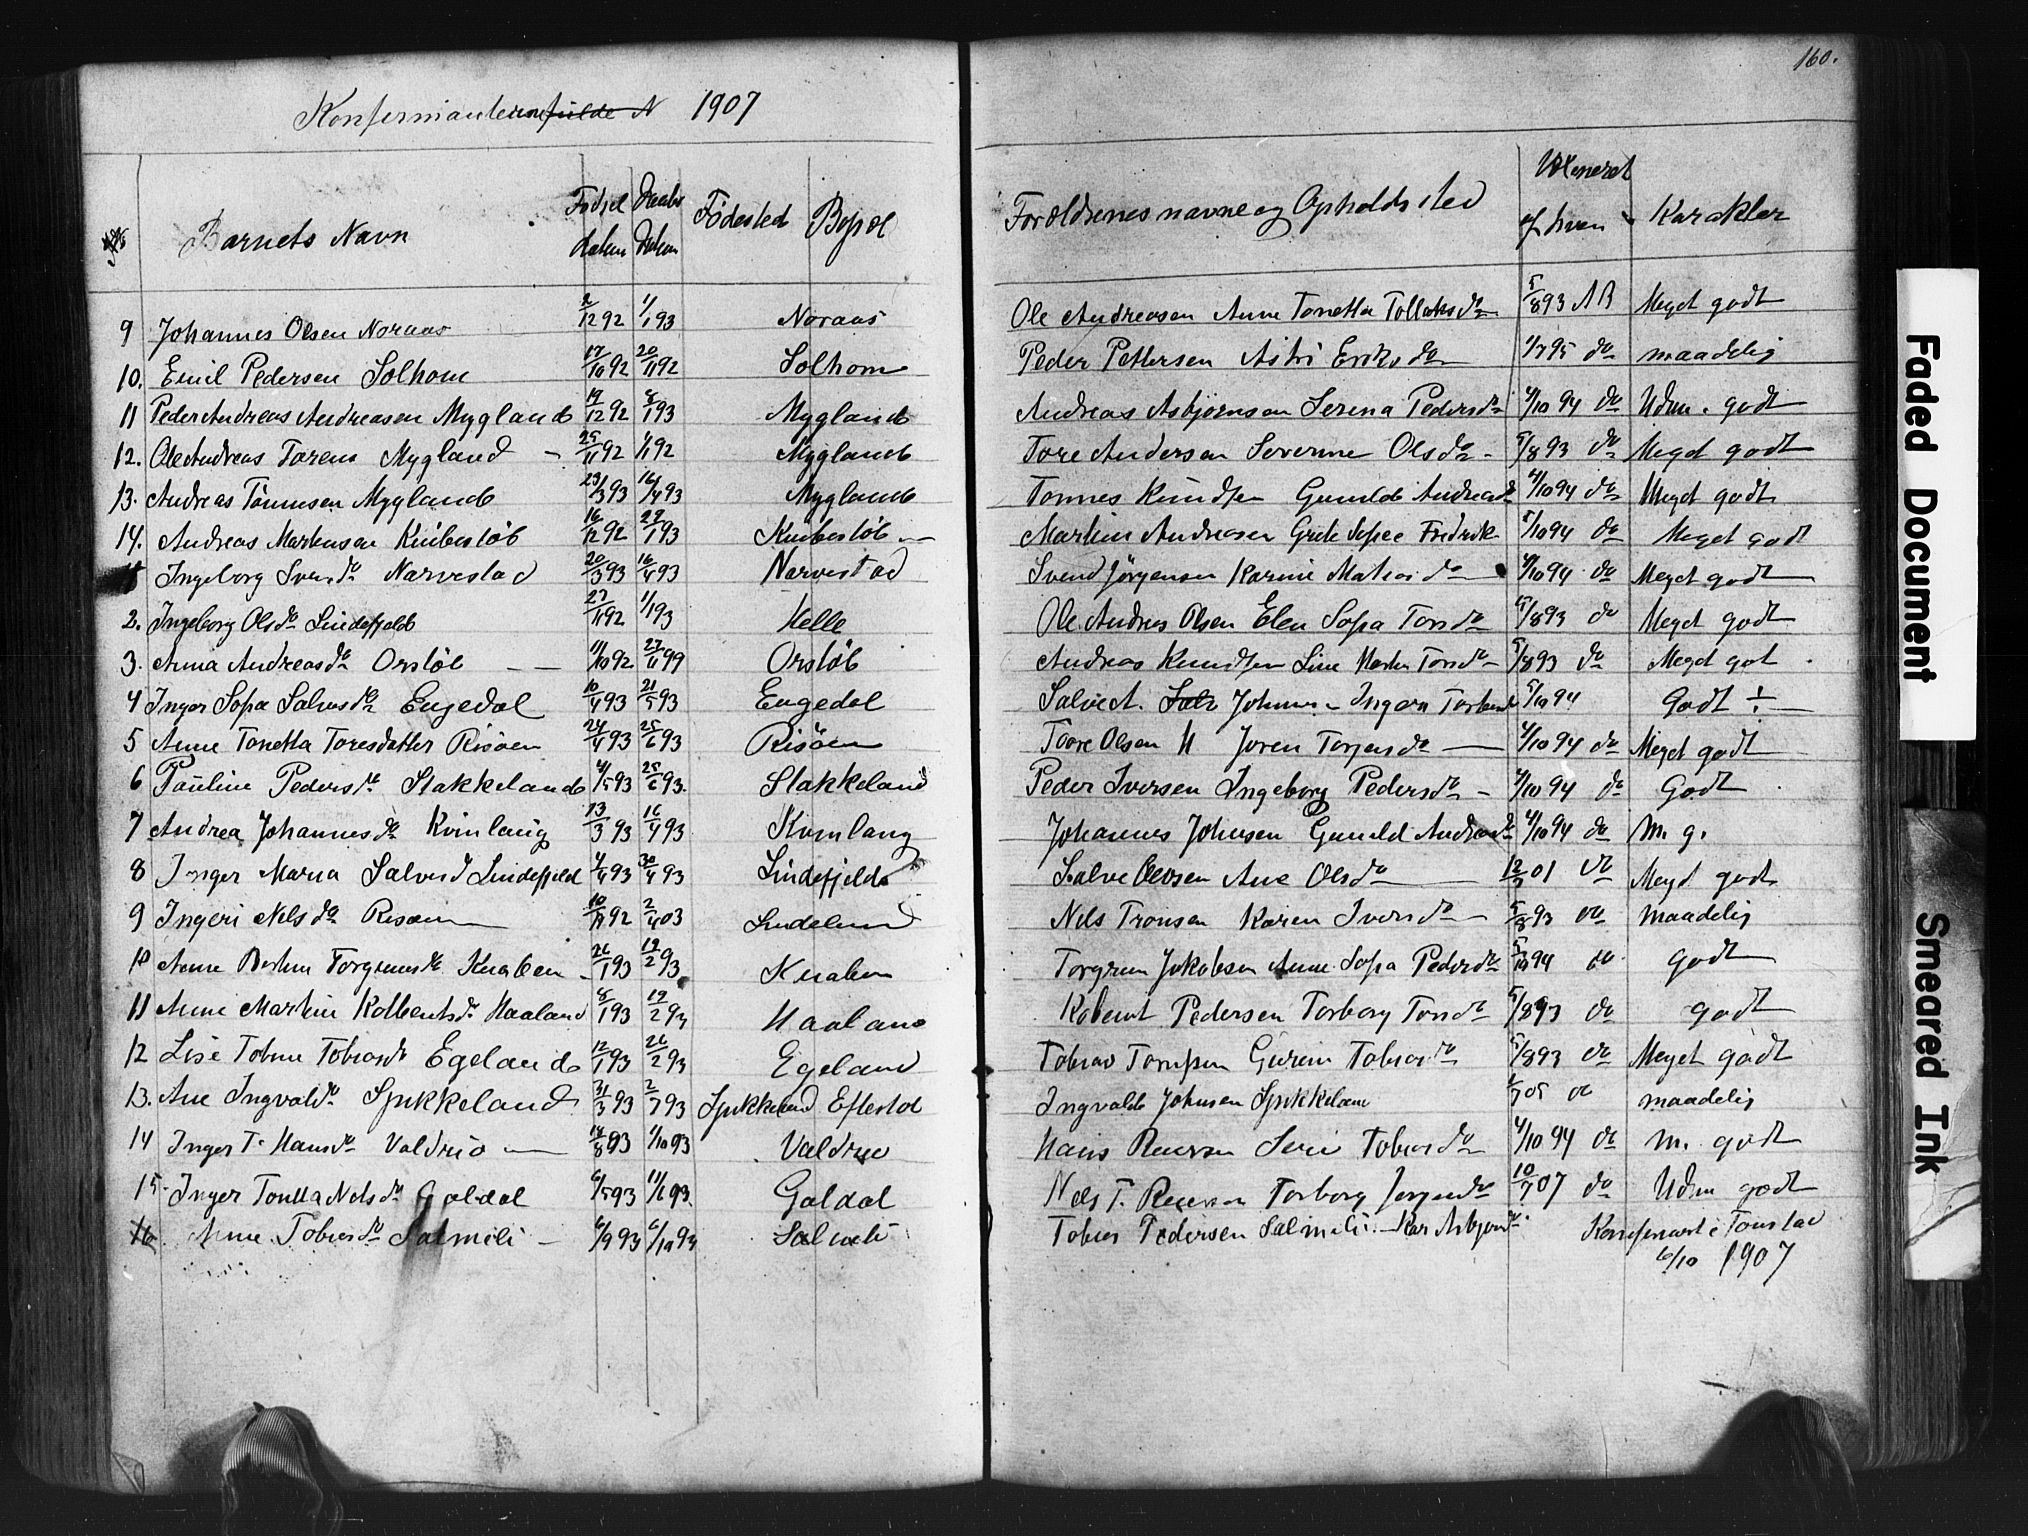 160.
Konfermanter 1907
No Barnets Navn Födsel datum Daabs Datum Födested Bopæl Forældrenes navne og Opholdsted Vaksineret af hvem Karakter
9 Johannes Olsen Noraas 2/12 92 1/1 93 Noraas Ole Andreasen Anne Tonetta Tollaksda 5/8 93 AB Meget godt
10. Emil Pedersen Solhom 17/10 92 20/11 92 Solhom Peder Pettersen Astri Eriksda 1/7 95 do maadelig
11 Peder Andreas Andreasen Mygland 19/12 92 8/1 93 Mygland Andreas Asbjørnsen Serina Pedersda 4/10 94 do Udm. godt
12. Ole Andreas Toresen Mygland 25/11 92 92 Mygland Tore Andersen Severine Olsda 5/8 93 do Meget godt
13. Andreas Tönnesen Mygland 23/3 93 16/4 93 Mygland Tonnes Knudsen Gunild Andreasd 4/10 94 do Meget godt
14. Andreas Martensen Knibeslöb 16/12 92 29/1 93 Knibeslöb Martin Andreasen Grete Sofie Fredrik 5/10 94 do Meget godt
1 Ingeborg Svensda Narvestad 20/3 93 16/4 93 Narvestad Svend Jörgensen Karine Matiasda 4/10 94 do Meget godt
2. Ingeborg Olsda Lindefjeld 27/11 92 1/1 93 Helle Ole Andreas Olsen Elen Sofa Tonsda 5/8 93 do Meget godt
3. Anna Andreasda Orslöb 11/10 92 27/11 99 Orslöb Andreas Knudsen Line Marta Tonsda 5/8 93 do Meget got
4 Inger Sofa Salvesda Engedal 10/4 93 21/5 93 Engedal Salve A. Johnsen Ingera Torbend 5/10 94 Godt ÷
5 Anne Tonetta Toresdatter Risöen 24/4 93 25/6 93 Risöen Toore Olsen H Joren Torjersda 4/10 94 do Meget godt
6 Pauline Pedersda Stakkeland 4/5 93 25/6 93. Stakkeland Peder Iversen Ingeborg Pedersda 4/10 94 do Godt
7 Andrea Johannesda Kvinlaug 13/3 93 16/4 93 Kvinlaug Johannes Johnsen Gunild Andreasd 4/10 94 do M. g.
8 Inger Maria Salvesd Lindefjeld 4/4 93 30/4 93 Lindefjeld Salve Olevsen Ane Olsda 12/7 01 do Meget godt
9 Ingeri Nelsda Risöen 10/11 92 2/4 03 Lindeland Nels Tronsen Karen Iversda 5/8 93 do maadelig
10 Anne Torgrimsda Knaben 26/1 93 19/2 93 Knaben Torgrim Jakobsen Anne Sofa Pedersda 5/10 94 do godt
11 Anne Martine Kolbentsda Haaland 8/1 93 19/2 93 Haaland Kolbent Pedersen Torborg Tonsda 5/8 93 do godt
12 Lise Tobine Tobiasda Egeland 12/1 93 26/2 93 Egeland Tobias Gurine Tobiasda 5/8 93 do Meget godt
13. Ane Ingvaldda Spikkeland 31/3 93 2/7 93 Spikkeland Eftestol Ingvald Johnsen Spikkeland 05 do maadelig
14 Inger T. Hansda Valdrio 14/8 93 1/10 93 Valdrio Hans Reiersen Siri Tobiasda 4/10 94 do M. godt
15. Inger Tonetta Nelsda Galdal 6/5 93 11/6 93. Galdal Nels T. Reiersen Torborg Jorgensda 10/7 07 do Udm godt
16 Anne Tobiasda Salmeli 6/9 93 6/10 93 Salmeli Tobias Pedersen Salmeli. Kar Asbjornsda. Konfermert i Tonstad
6/10 1907
Faded Document
Smeared Ink